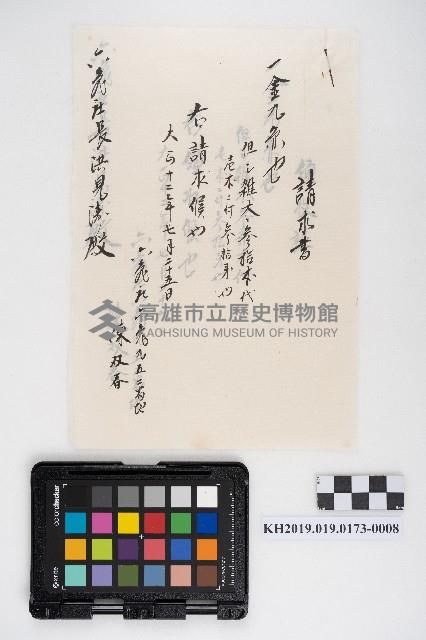 請求書
一金九円也
但シ雑犬参拾本代
壱本ニ付参拾銭也
右請求候也
大正十二年七月二十五日
六龜社六龜九五二番地
陳双春
六龜社長洪見湧殿
高雄市立歷史博物館
KAOHSIUNG MUSEUM OF HISTORY
KH2019.019.0173-0008
colorchecker
x-rite